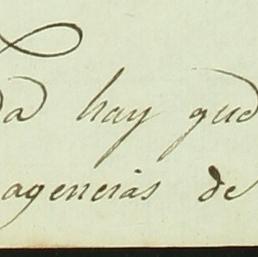 hay que
agencias de